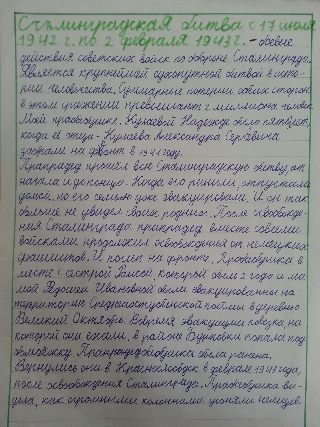 Сталинградская битва с 17 июля
1942 г. по 2 февраля 1943 г. - боевые
действия советских войск по обороне Сталинграда.
Является крупнейшей сухопутной битвой в исто-
рии человечества. Суммарные потери обеих сторон
в этом сражении превышают 2 миллиона человек.
Моей прабабушке, Надежде было пять лет,
когда её отца - Александра Сергеевича
забрали на фронт в 1941 году.
Прапрадед прошёл всю Сталинградскую битву от
начала и до конца. Когда его ранили, отпустили
домой, но его семью уже эвакуировали. И он так
больше не увидел своих родных. После освобожде-
ния Сталинграда прапрадед вместе своими
войсками продолжил освобождения от немецких
фашистов. И погиб на фронте. Прабабушка в
месте с сестрой Раисой, которой было 2 года и ма-
мой Ивановной были эвакуированны на
территорию Среднеахтубинской поймы в деревню
Великий Октябрь. Вовремя эвакуации повозка, на
которой они ехали, в районе Бурковки попала под
бомбёжку. Прапрабабушка была ранена.
Вернулись они в Краснослободск в феврале 1943 года,
после освобождения Сталинграда. Прабабушка ви-
дела, как огромными колоннами гнали немцев